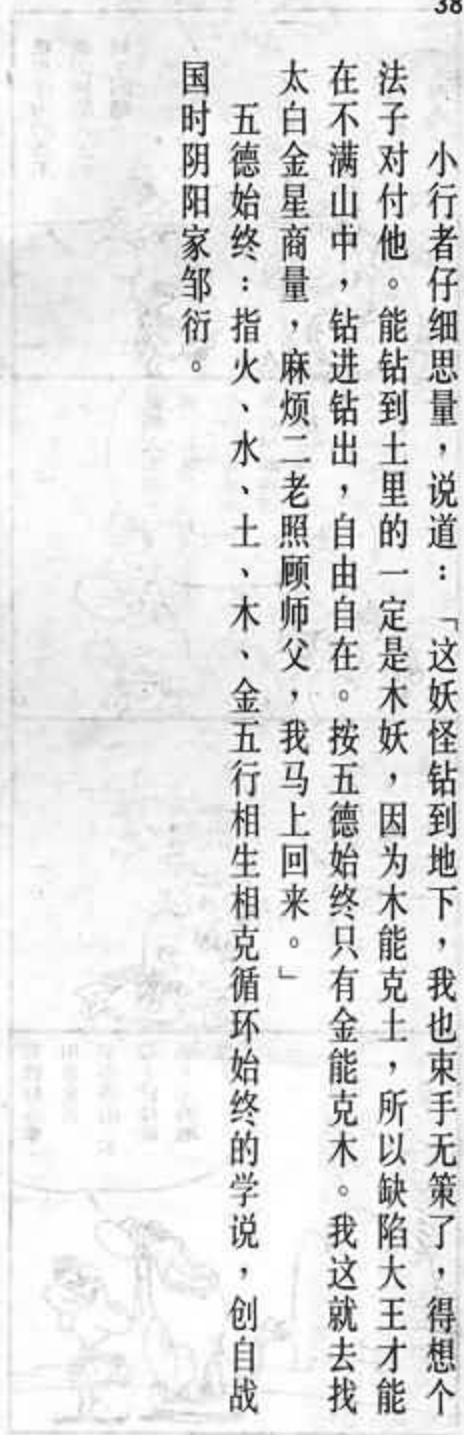 38
小行者仔细思量，说道：「这妖怪钻到地下，我也束手无策了，得想个
法子对付他。能钻到土里的一定是木妖，因为木能克土，所以缺陷大王才能
在不满山中，钻进钻出，自由自在。按五德始终只有金能克木。我这就去找
太白金星商量，麻烦二老照顾师父，我马上回来。」
五德始终：指火、水、土、木、金五行相生相克循环始终的学说，创自战
国时阴阳家邹衍。